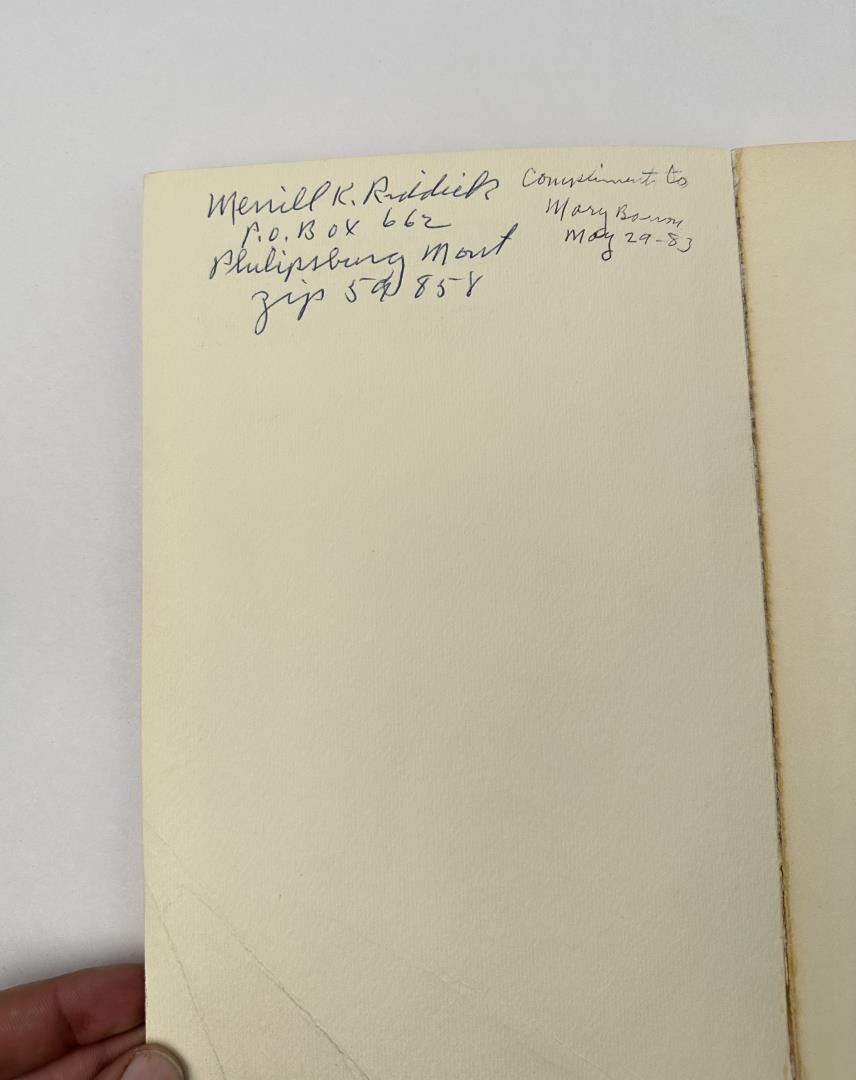 Merrill K. Riddick
P.O. Box 662
Philipsburg Mont
zip 59858
Compliment to
Mary
May 29-83